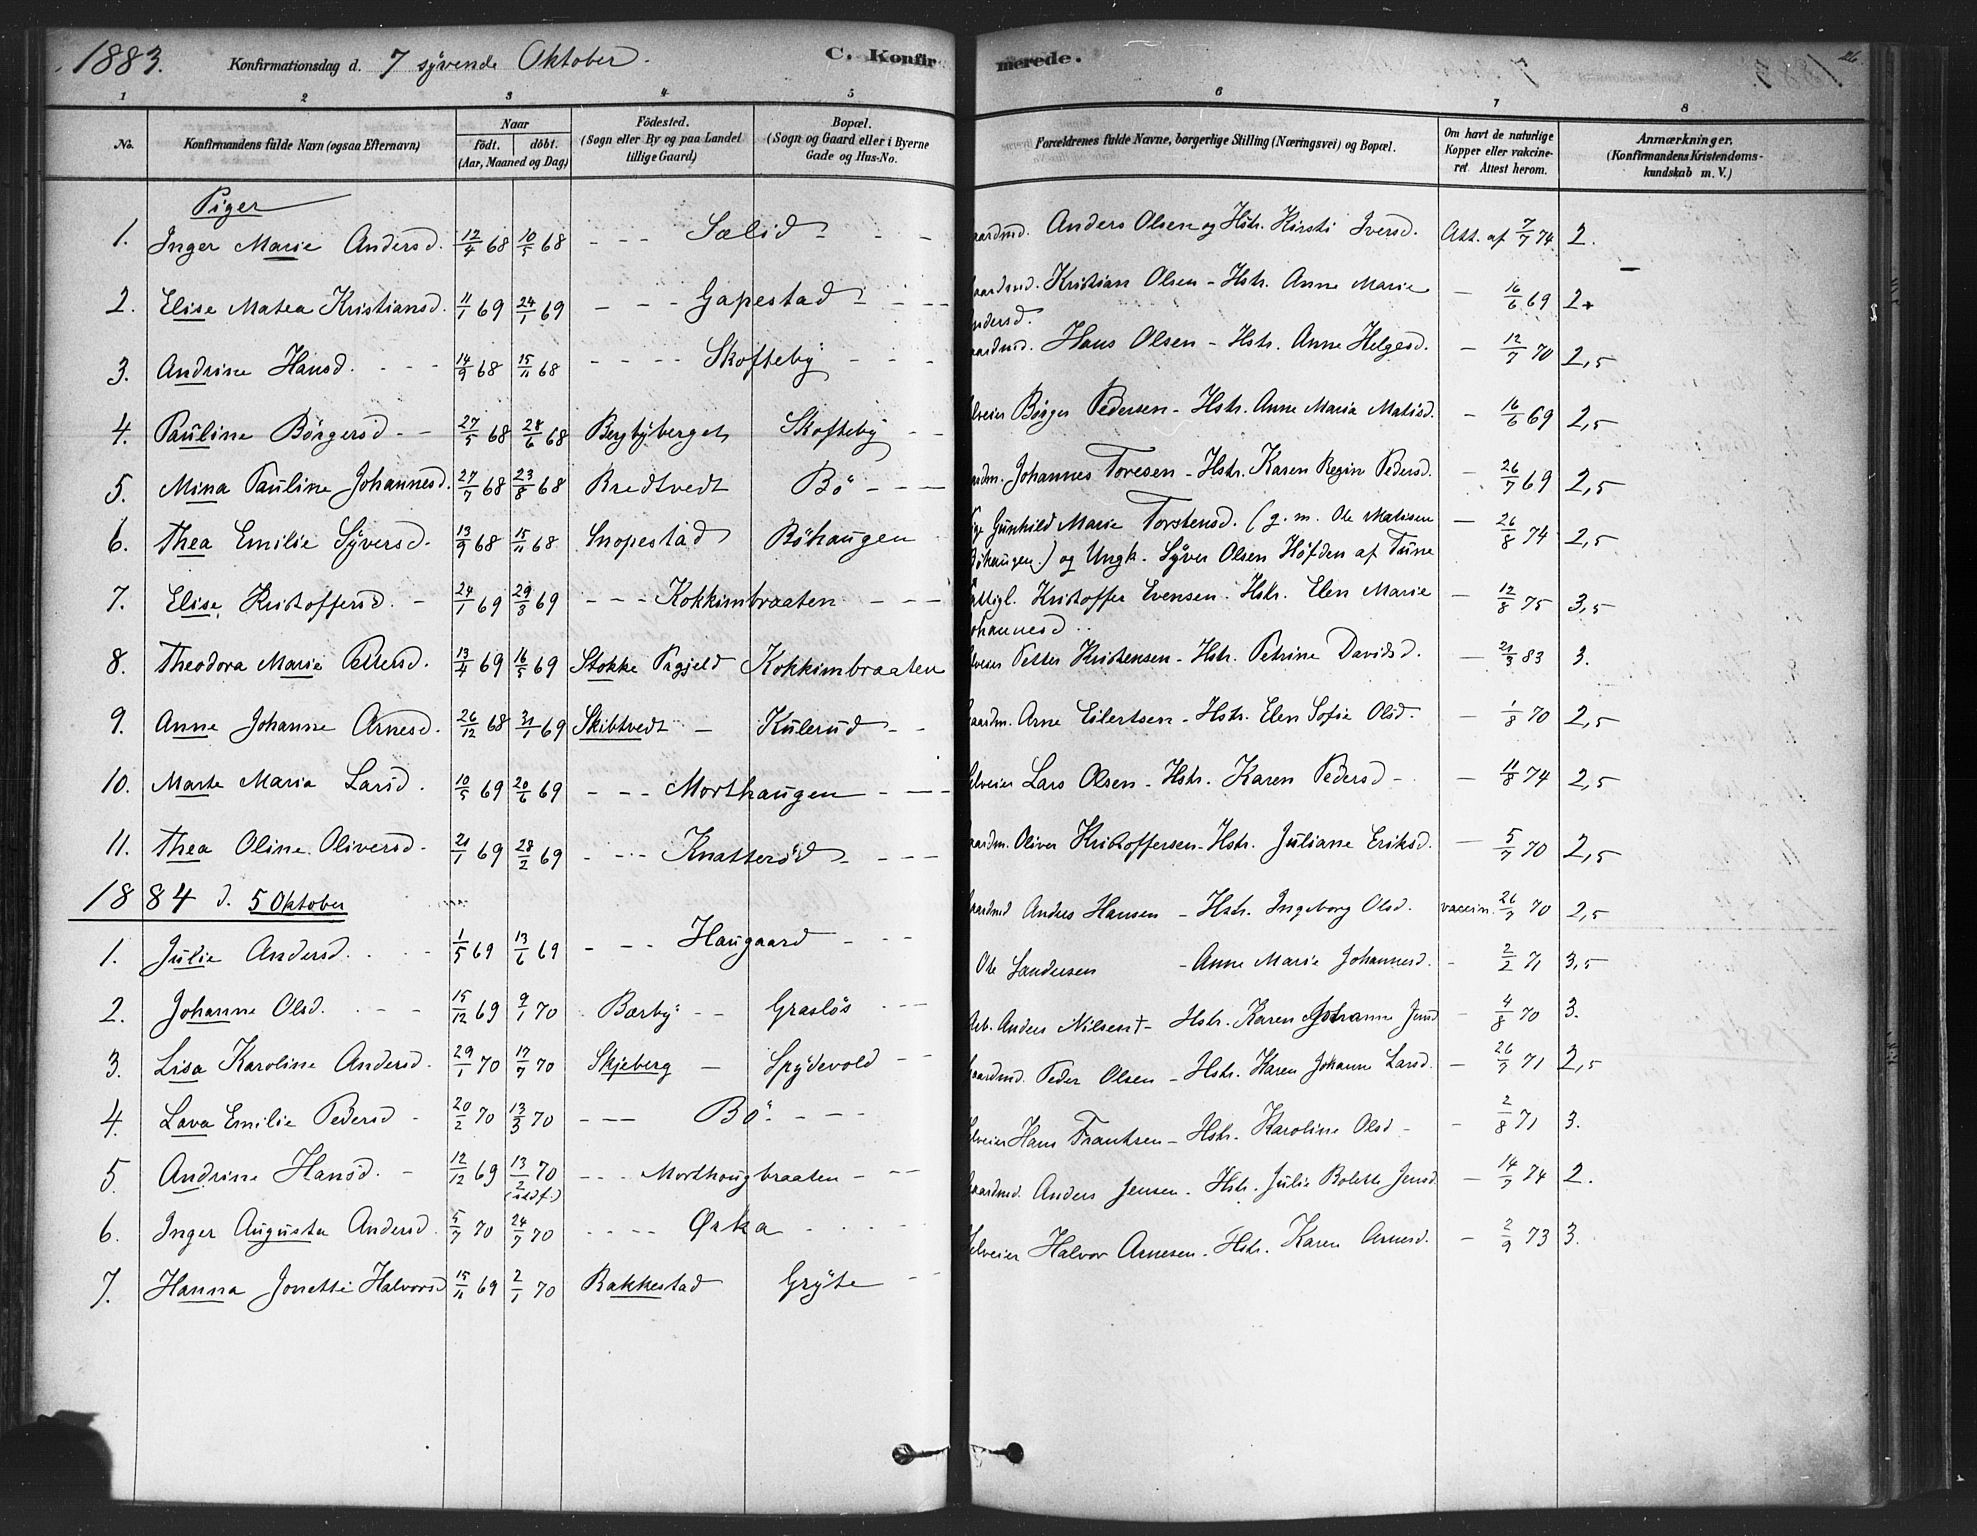 1883. Konfirmationsdag d. 7 syvende Oktober. C. Konfirmerede. 26.
1 2 3 4 5 6 7 8
No. Konfirmandens fulde Navn (ogsaa Efternavn) Naar födt. döbt. (Aar, Maaned og Dag) Födested. (Sogn eller By og paa Landet tillige Gaard) Bopæl. (Sogn og Gaard eller i Byerne Gade og Hus-No. Forældrenes fulde Navne, borgerlige Stilling (Næringsvei) og Bopæl. Om havt de naturlige Kopper eller vakcineret. Attest herom. Anmærkninger. (Konfirmandens Kristendomskundskab m. V.)
Piger
1. Inger Marie Andersd. 12/4 68 10/5 68 - - - Sælid - - - Anders Olsen og Hstr. Kirsti Iversd. Att. af 7/7 74 2.
2. Elise Matea Kristiansd. 11/1 69 24/1 69 - - - Gapestad - - - Kristian Olsen - Hstr. Anne Marie
- 16/6 69 2
3. Andrine Hansd. - - - 14/9 68 15/11 68 - - - - Skofteby - - - Hans Olsen - Hstr. Anne Helgesd. - 12/7 70 2,5
4. Pauline Börgersd - - 27/5 68 28/6 68 Bergbyberget Skofteby - - Börger Pedersen - Hstr. Anne Maria Matisd. - 16/6 69 2,5
5. Mina Pauline Johannesd. 27/7 68 23/8 68 Bredtvedt Bö - - - Johannes Toresen - Hstr. Karen Regine Pedersd. - 26/7 69 2,5
6. Thea Emilie Syversd. 13/9 68 15/11 68 Snopestad Böhaugen Gunhild Marie Torstensd. (g. m. Ole Matisen
Böhaugen) og Ungk. Syver Olsen Höfden af Tune - 26/8 74 2,5
7. Elise Kristoffersd. - 24/1 69 29/3 69 - - - Kokkimbraaten - - - Kristoffer Evensen. Hstr. Elen Marie
Johannesd - 12/8 75 3,5
8. Theodora Marie Pettersd. 13/4 69 16/5 69 Stokke Kokkimbraaten Petter Kristensen - Hstr. Petrine Davidsd. - 21/3 83 3.
9. Anne Johanne Arnesd. 26/12 68 31/1 69 Skibtvedt - Kulerud - - Arne Eilertsen - Hstr. Elen Sofie Olsd. - 1/8 70 2,5
10. Marte Maria Larsd. 10/5 69 20/6 69 - - - Morthaugen - - - Lars Olsen - Hstr. Karen Pedersd - - 11/8 74 2,5
11. Thea Oline Oliversd. 21/1 69 28/2 69 - - - Knatteröd - - - - Oliver Kristoffersen - Hstr. Juliane Eriksd. - 5/7 70 2,5
1884 d. 5 Oktober
1. Julie Andersd. 1/5 69 13/6 69 - - - Haugaard - - - Anders Hansen - Hstr. Ingeborg Olsd. vaccin. 26/7 70 2,5
2. Johanne Olsd. - - 15/12 69 9/1 70 Bærby - - Graslös - - - Ole Sandersen - Anne Marie Johannesd. - 2/2 71 3,5
3. Lisa Karoline Andersd. 29/1 70 17/7 70 Skjeberg - Spydevold - - Arb. Anders Nilsen † - Hstr. Karen Johanne Jensd - 4/8 70 3.
4. Lava Emilie Pedersd - 20/2 70 13/3 70 - - - Bö - - - Peder Olsen - Hstr. Karen Johanne Larsd. - 26/7 71 2,5
5. Andrine Hansd. - 12/12 69 13/2 70 - - - Morthaugbraaten - - - Hans Frantsen - Hstr. Karoline Olsd - - 2/8 71 3.
6. Inger Augusta Andersd. 5/7 70 24/7 70 - - - - Örka - - - - Anders Jensen. Hstr. Julie Bolette Jensd - 14/7 74 2.
7. Hanna Jonette Halvorsd 15/11 69 2/1 70 Rakkestad Gryte - - Halvor Arnesen. Hstr. Karen Arnesd. - 2/9 73 3.